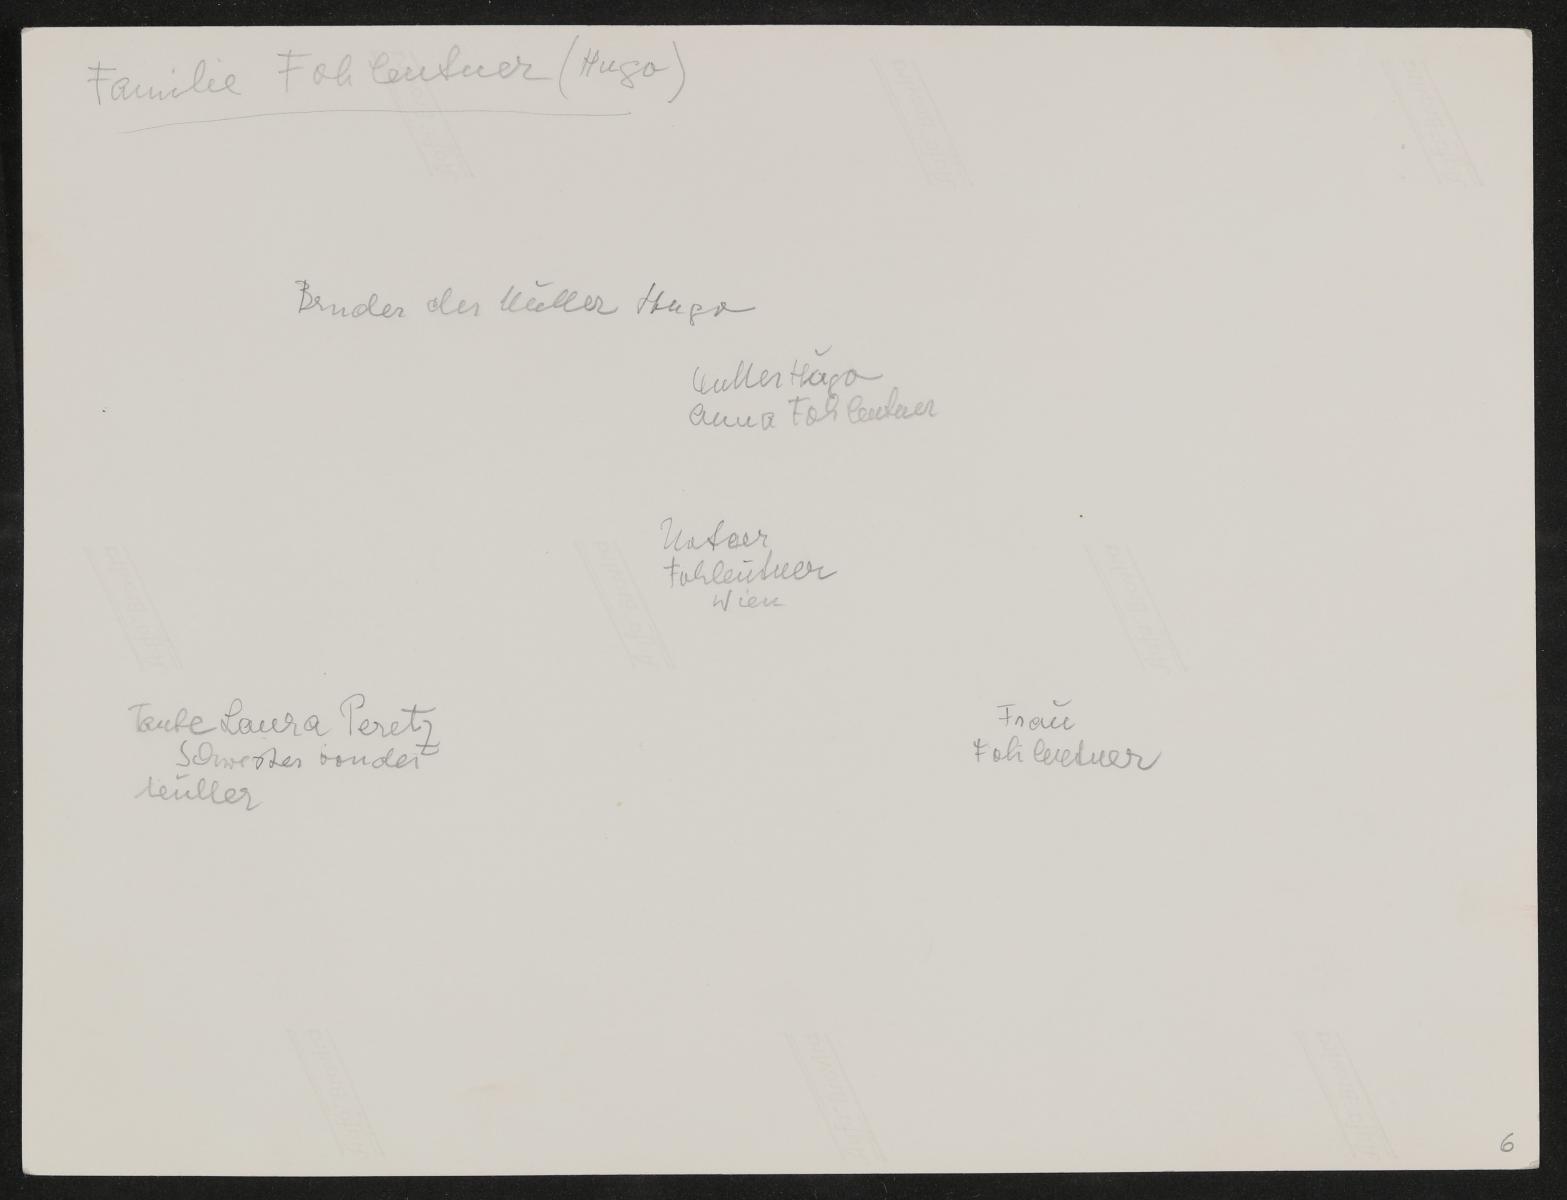 Familie Fohleutner (Hugo)
Bruder der Müller Hugo
Müller Hugo
Anna Fohleutner
Notaer
Fohleutner
Wien
Tante Laura Peretz
Schwester von der
Müller
Frau
Fohleutner
6